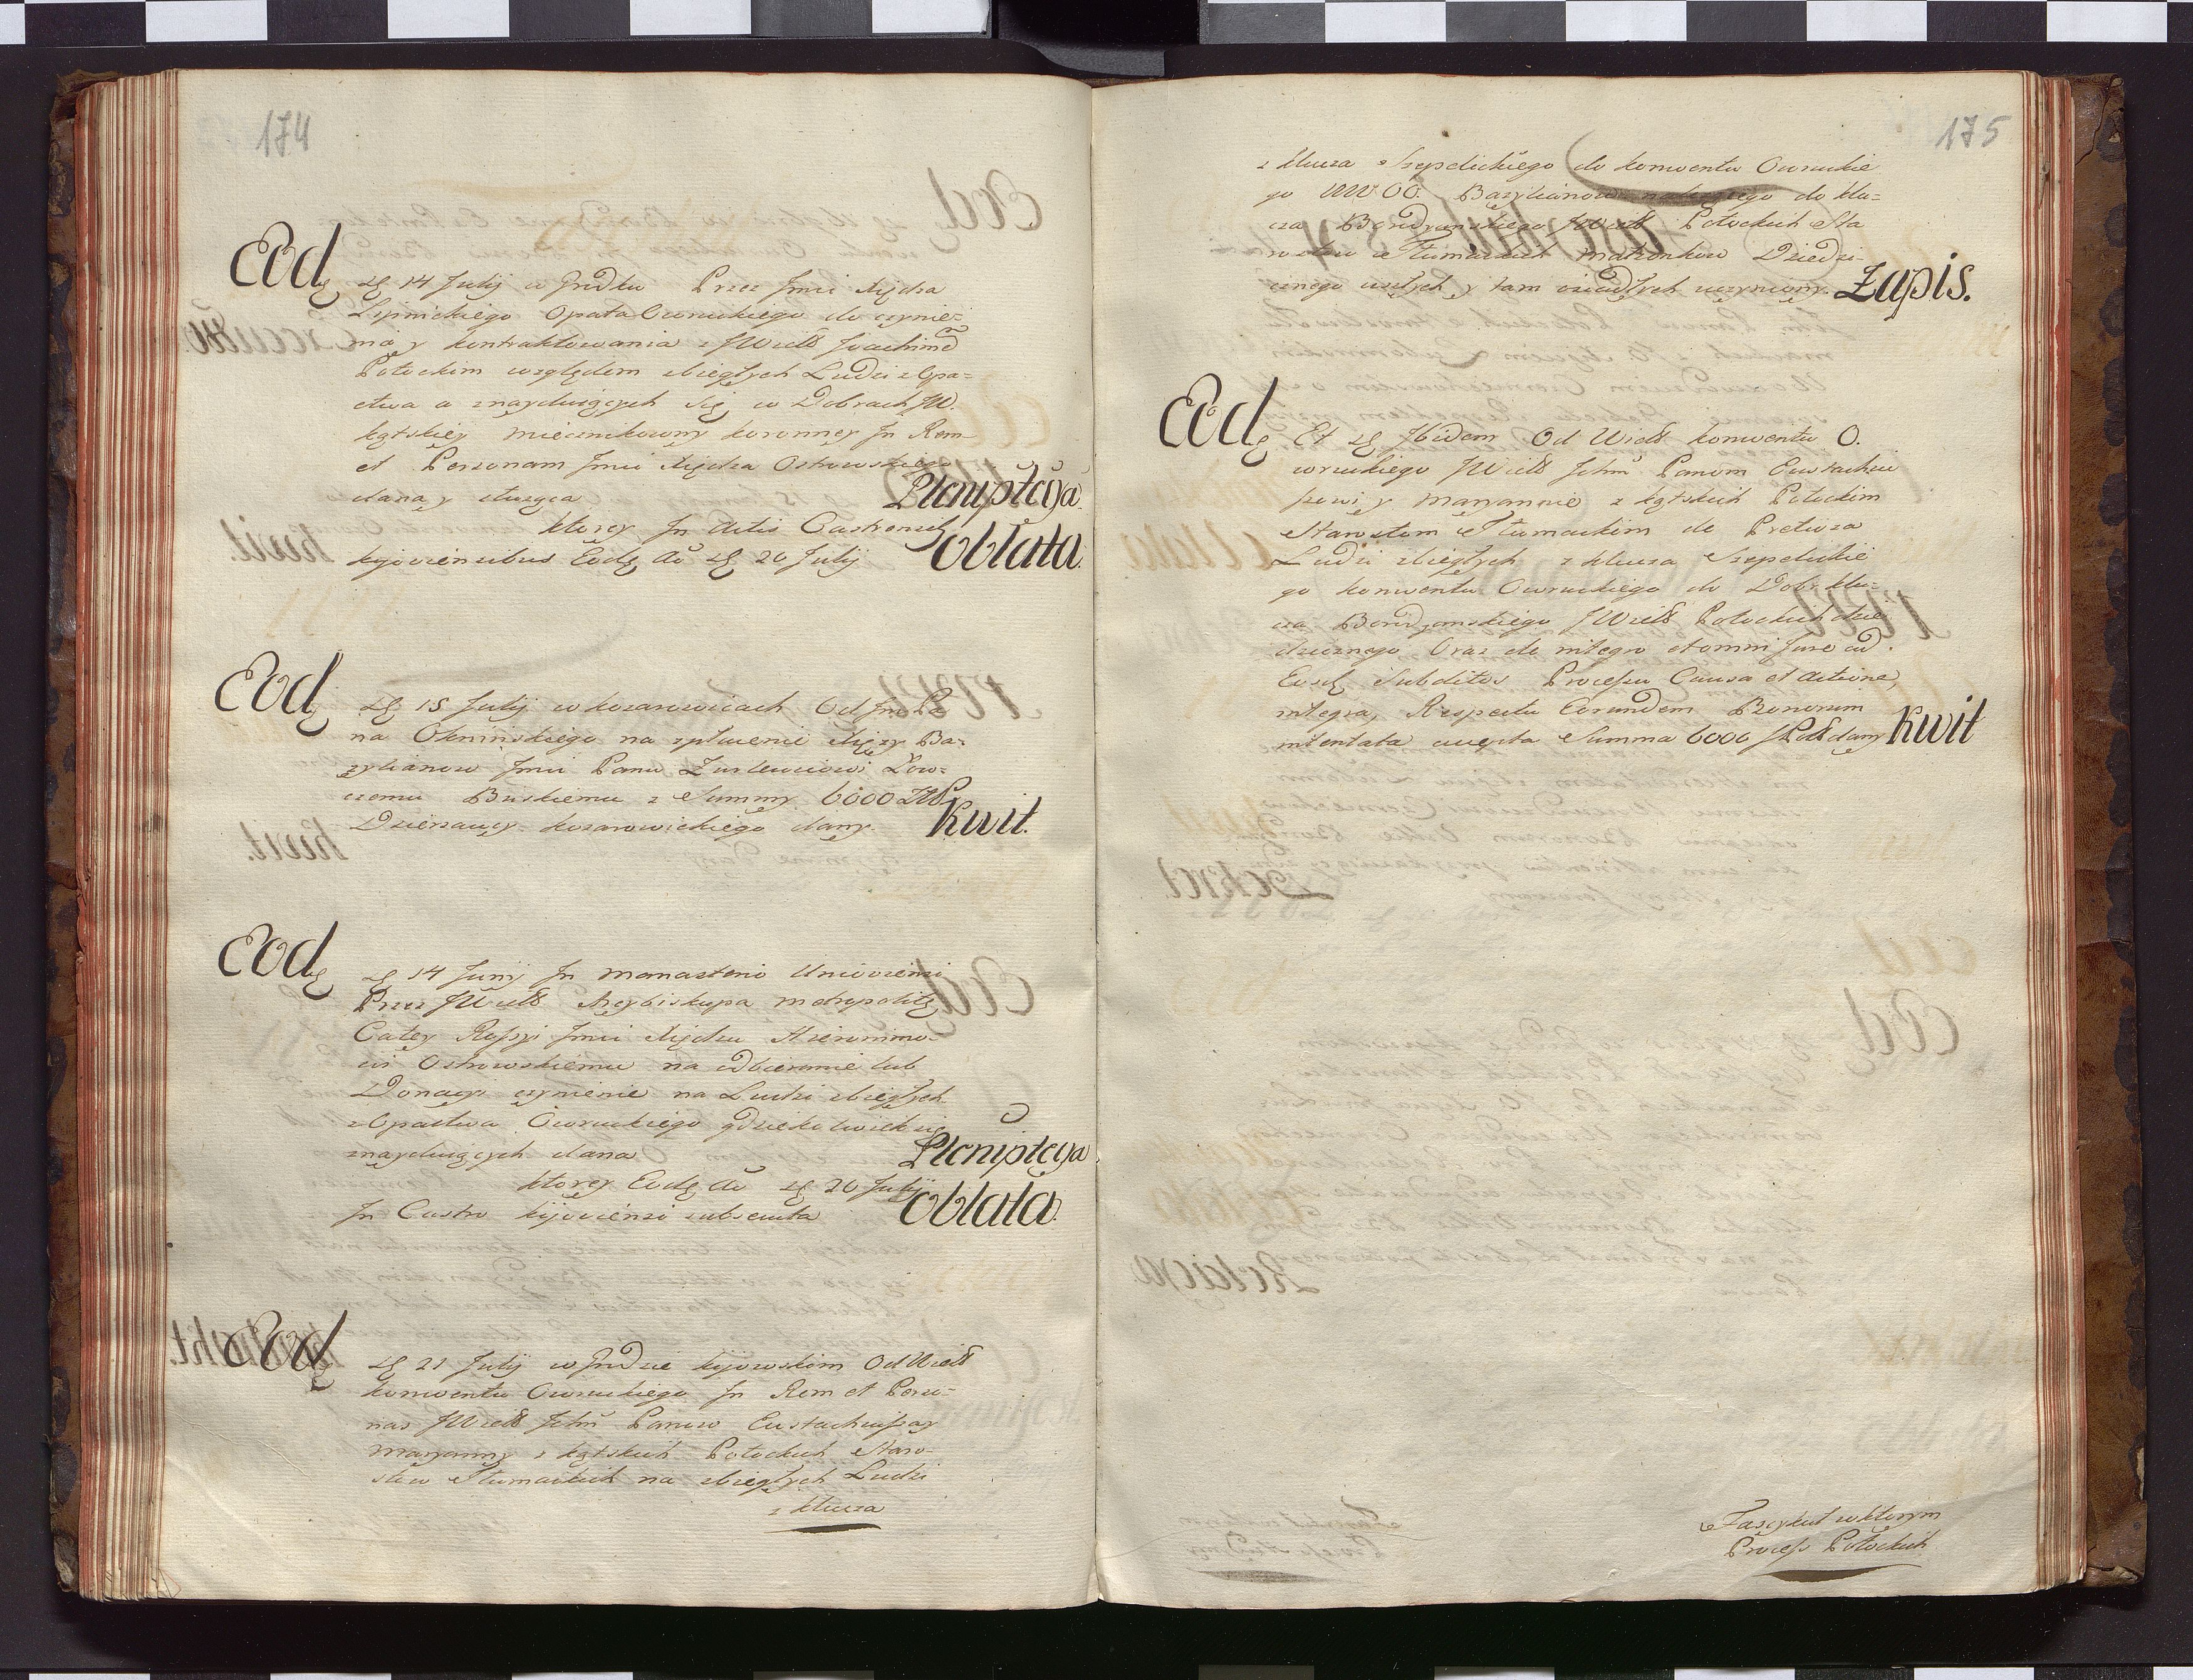 174
Eodę dę 14 Julij w Gródku Przez Jmci Xiędza
Lipnickiego Opata Owruckiego do czynie=
nia y kontraktowania z JWielo Joachimẽ
Potockim względem zbiegłych Ludzi z Opa=
ctwa a znayduiących się w Dobrach JW.
kątskiey miecznikowny koronney Jn Rem
et Personam Jmci Xiędza Ostrowskiego
dana y służąca Plenipłcyja.
ktorey Jn Actis Castrensib
kijoviensibus Eodę Aõ dę 20 Julij Oblata.
Eodę dę 15 Julij w kozarowicach Od Jmci Pa
na Okminskiego na
zylianow Jmci Panu Łow=
czemu Buskiemu z Summy 6000 Zło
Dzierżawcy kozarowickiego dany. Kwit.
Eodę dę 14 Junij Jn Monasterio
Przez JWielo Arcybiskupa metropolitę
Całey Rossyi Jmci Xiędzu Hieronimo-
wi Ostrowskiemu na odbieranie lub
Donacyi czynienie na Ludzi zbiegłych
z Opactwa Owruckiego gdziekolwiek się
znayduiących dana Plenipłcyja
ktorey Eodę Aõ dę 20 Julij
Jn Castro kijoviensi subsecuta Oblata.
Eodę dę 21 Julij w Grodzie kijowskim Od Wielo
konwentu Owruckiego Jn Rem et Perso-
nas JWielo Jchm̃ Panow Eustachiusza y
Maryanny z kątskich Potockich Staro-
stow Tłumackich na zbiegłych Ludzi
z klucza
175
z klucza Szepelickiego do konwentu Owruckie
go WW. OO. Bazylianow należącego do klu=
cza Bondzynskiego JWielo Potockich Sta
rostow Tłumackich małżonkow Dziedzi-
cznego uszłych y tam osiadłych uczyniony. Zapis.
Eodę Et dę Jbidem Od Wielo konwentu O.
wruckiego JWielo Jchm̃ Panom Eustachiu
szowi y Maryannie z kątskich Potockim
Starostom Tłumackim de Pretioza
Ludzi zbiegłych z klucza Szepelickie
go konwentu Owruckiego do Dobr klu=
cza Bondzynskiego JWielo Potockich dzie
dzicznego Oraz de integro et omni Jure ad
Eosdę Subditos Processu Causa et Actione,
integra, Respectu Eorundem Bonorum
intentata accepta Summa 6000 Zło dany Kwit
Fascykuł w ktorym
Process Potockich